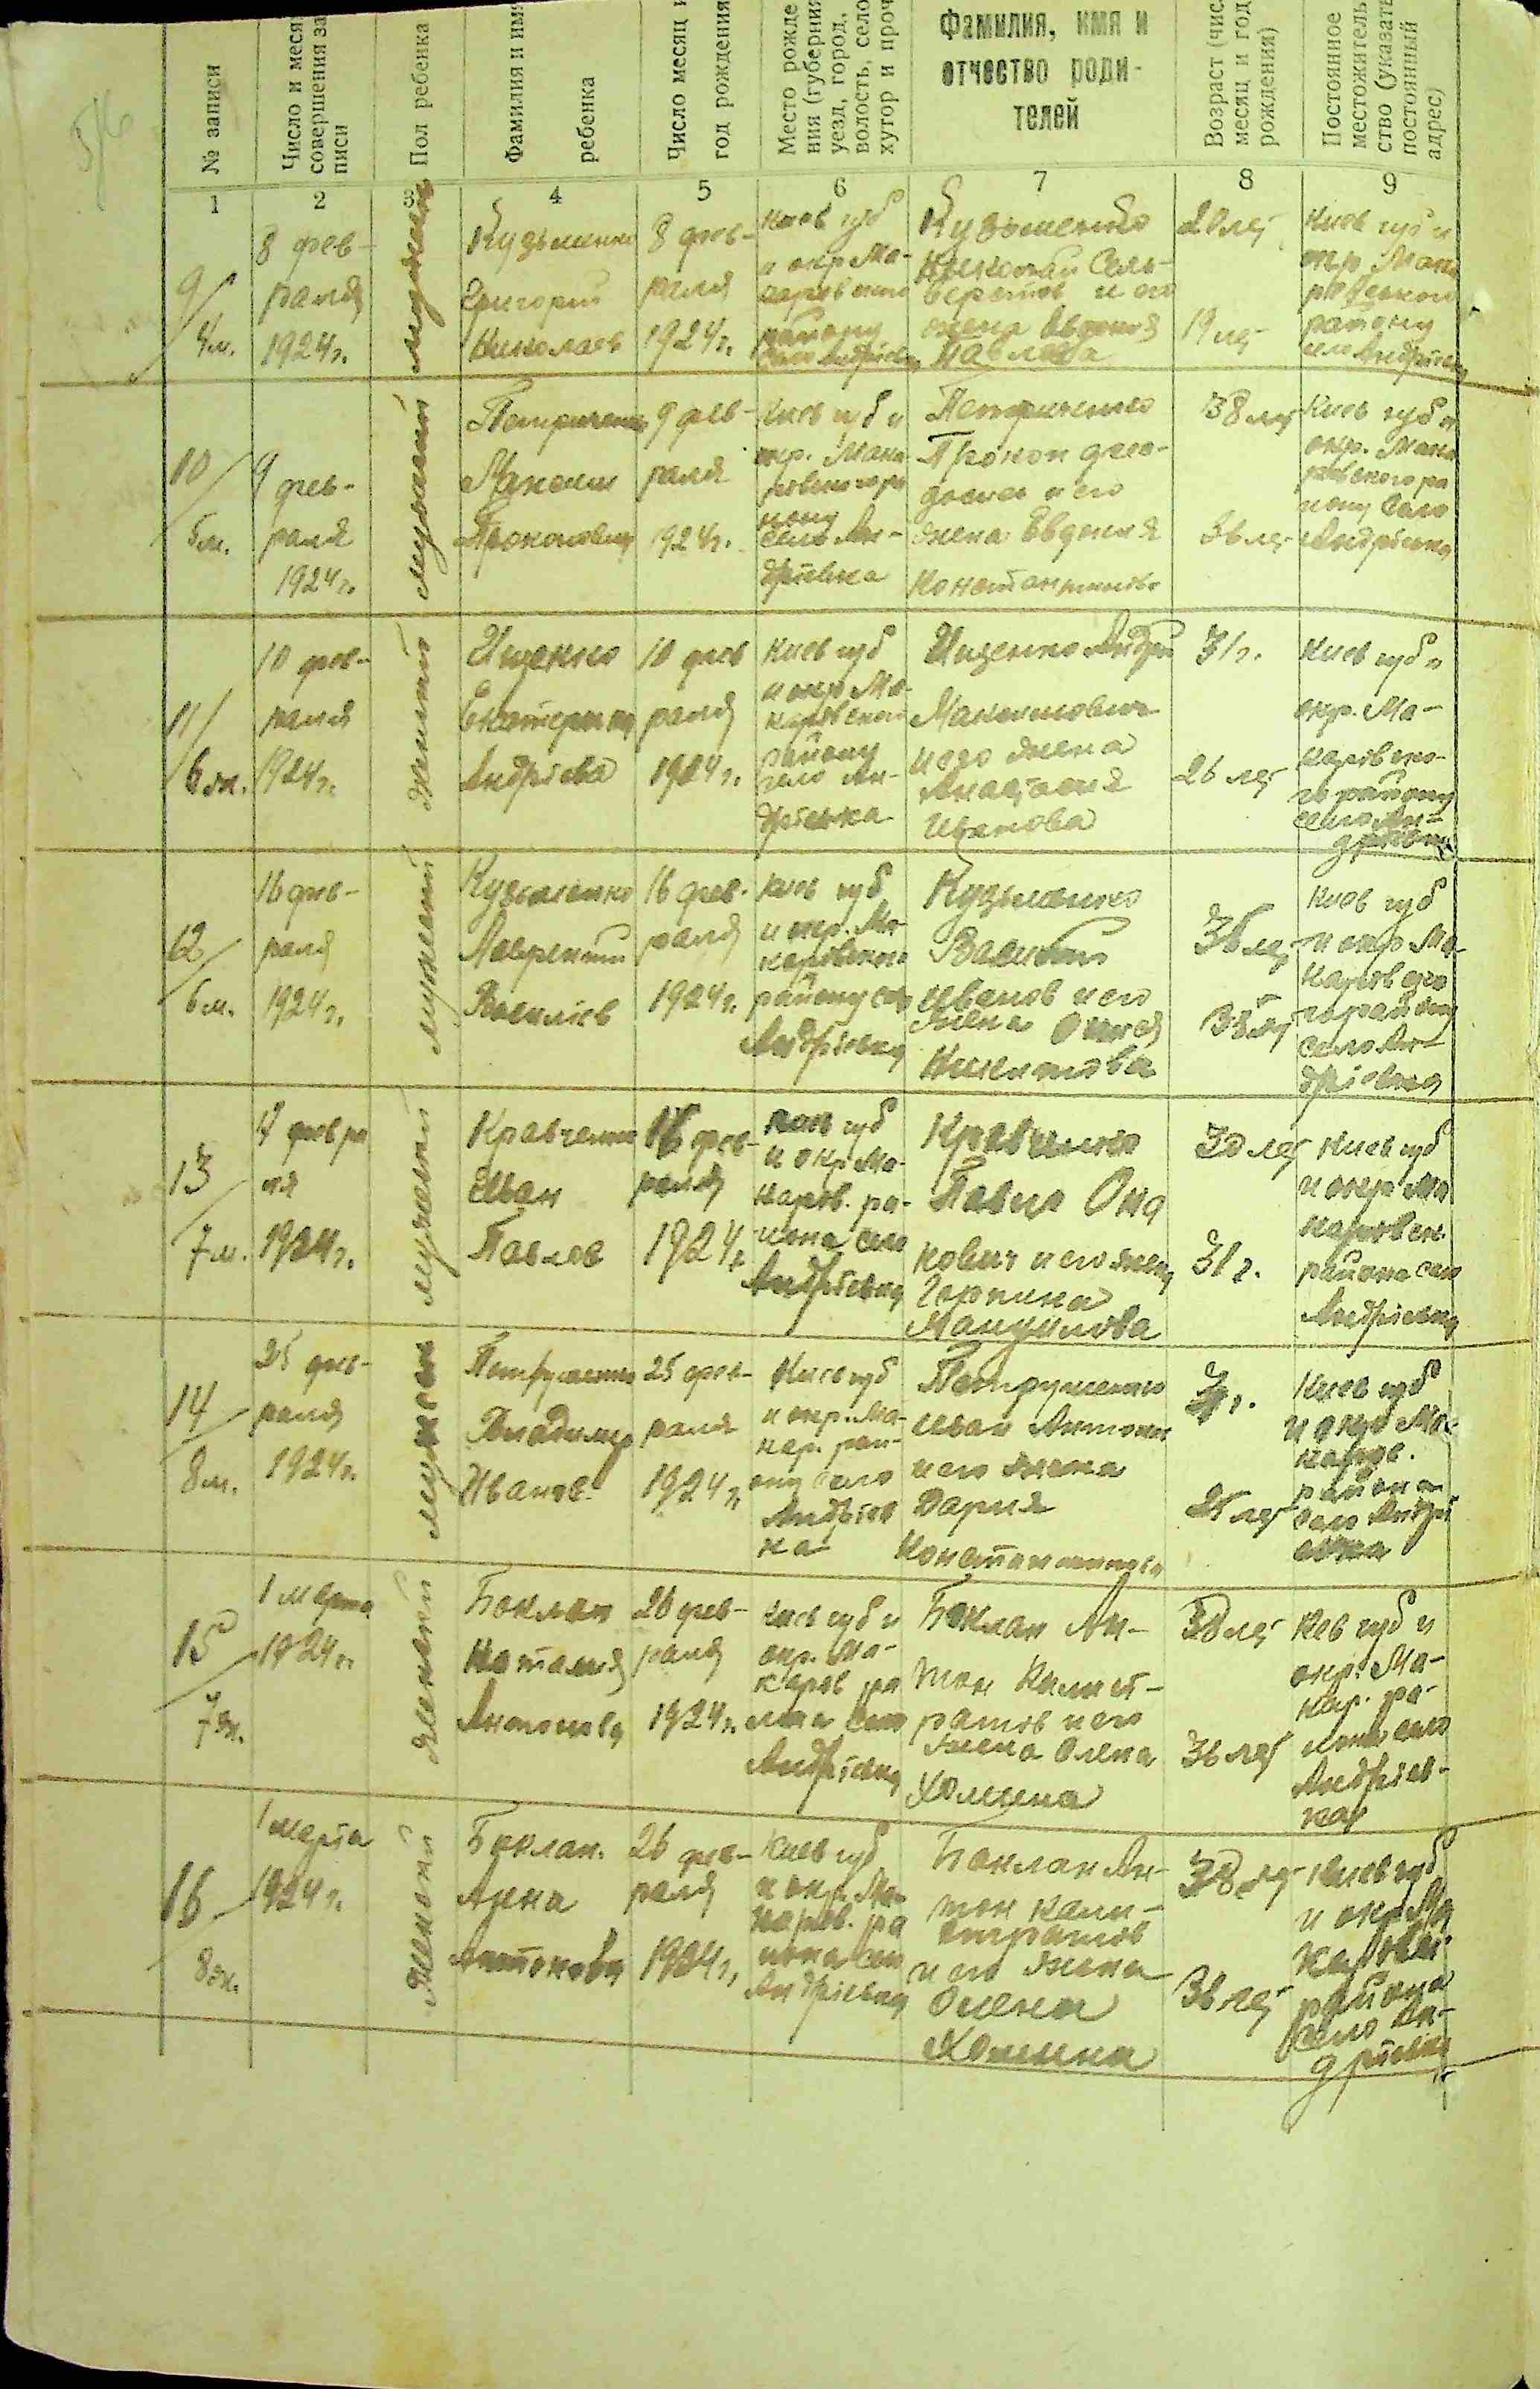 № записи
Число и меся
совершения за
писи
Пол ребенка
Фамилия и имя
ребенка
Число месяц и
год рождения
Место рожде
ния (губерния
уезд, город,
волость, село
хутор и проч
Фамилия, имя и
отчество роди-
телей
Возраст (чис.
месяц и год
рождения)
Постоянное
местожитель
ство (указать
постоянный
адрес)
1 2 3 4 5 6 7 8 9
9/4м.
8 фев-
раля
1924г.
мужской
Кузьменко
Григорий
Николаев
8 фев-
раля
1924г.
Киев губ
и окр Ма-
каровского
району
село Андріевка
Кузьменко
Николай Сель-
верстов и его
жена Евдокия
Павлова
20 лет
19 лет
Киев губ и
окр. Мака
ровского
району
село Андріевка
10/5м.
9 фев-
раля
1924г.
мужской
Петриченко
Максим
Прокопович
9 фев-
раля
1924г.
Киев губ и
окр. Мака
ровского ра
йону
село Ан-
дріевка
Петриченко
Прокоп
и его
жена Евдокия
Константинова
38 лет
36 лет
Киев губ и
окр. Мака
ровского ра
йону село
Андріевка
11/6ж.
10 фев-
раля
1924г.
женский
Ищенко
Екатерина
Андріева
10 фев
раля
1924г.
Киев губ
и окр Ма-
каровского
району
село Ан-
дріевка
Ищенко Андрій
Максимович
и его жена
Анастасия
Иванова
31г.
26 лет
Киев губ и
окр. Ма-
каровско-
го району
село Ан-
дріевка
12/6м.
16 фев-
раля
1924г.
мужской
Кузьменко
Лаврентий
Василіев
16 фев-
раля
1924г.
Киев губ
и окр. Ма
каровского
району село
Андріевка
Кузьменко
Василий
Иванов и его
жена
Никитова
36 лет
35 лет
Киев губ
и окр Ма
каровско
го району
село Ан-
дріевка
13/7м.
февра
ля
1924г.
мужской
Кравченко
Иван
Павлов
16 фев-
раля
1924г.
Киев губ
и окр Ма-
каров. ра-
йона село
Андріевка
Кравченко
Павло Она
кович и его жена
Горпина
Мануилова
30 лет
31г.
Киев губ
и окр Ма
каровск.
района село
Андріевка
14/8м.
25 фев-
раля
1924г.
мужской
Петрушенко
Владимир
Иванов.
25 фев-
раля
1924г.
Киев губ
и окр. Ма-
кар. рай-
ону село
Андріев
ка
Петрушенко
Иван Антонов
и его жена
Дария
Константинова
25 лет
Киев губ
и окр Ма-
каров.
района
село Андрі
евка
15/7ж.
1 марта
1924г.
женский
Баклан
Наталия
Антонова
26 фев-
раля
1924г.
Киев губ и
окр. Ма-
каров ра
йона село
Андріевка
Баклан Ан-
тон Калист-
ратов и его
жена Олена
Хомина
38 лет
36 лет
Киев губ и
окр. Ма-
кар. ра-
йона село
Андріев-
ка
16/8ж.
1 марта
1924г.
женский
Баклан.
Анна
Антонова
26 фев-
раля
1924г.
Киев губ
и окр. Ма
каров. ра
йона село
Андріевка
Баклан Ан-
тон Кали-
стратов
и его жена
Олена
Хомина
38 лет
36 лет
Киев губ
и окр Ма
каров.
района
село Ан-
дріевка